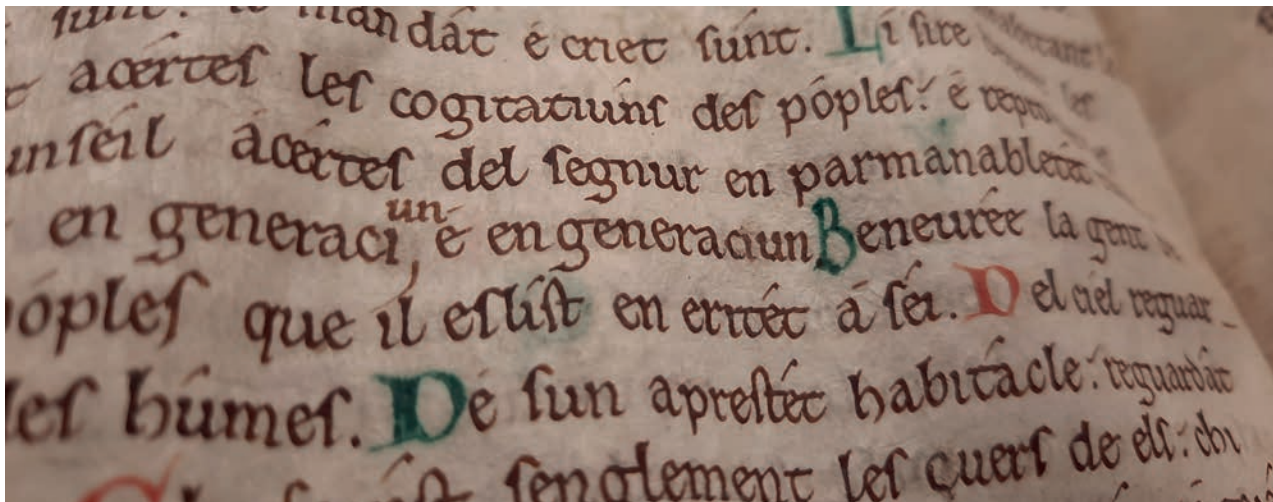 sunt. mandát é criet sunt. Li sire
acértes les cogitatiuns des póples: é
unseil ácértes del segnur en parmanableté
en generaciun é en generaciun Beneurée la gent
póples que il eslíst en eritét á séi. Del ciel reguar-
les húmes. Dé sun aprestét habitácle: reguardát
senglement les cuers de els: chi